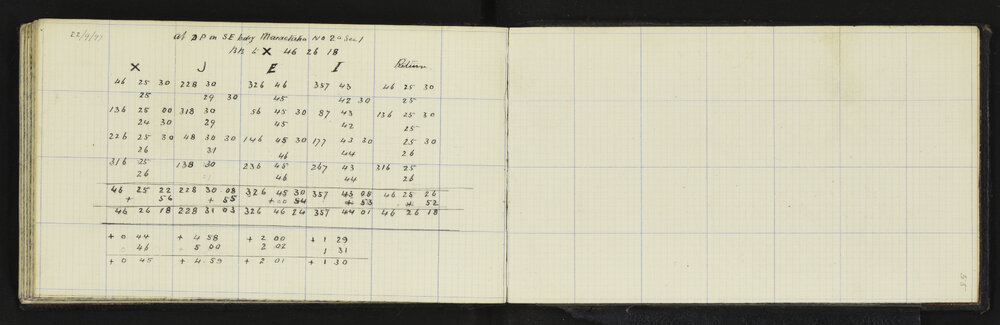 22/9/97
at DP on SE bdy Maraetaha No 2a Sec 1
BR to X 46 26 18
X J E I Return
46 25 30 228 30 326 46 357 43 46 25 30
25 29 30 45 42 30 25
136 25 00 318 30 56 45 30 87 43 136 25 30
24 30 29 45 42 25
226 25 30 48 30 30 146 45 30 177 43 30 25 30
26 31 46 44 26
316 25 138 30 236 45 267 43 316 25
26 46 44 26
46 25 22 228 30.08 326 45 30 357 43 08 46 25 26
+ 56 + 55 + 00 54 + 53 + 52
46 26 18 228 31 03 326 46 24 357 44 01 46 26 18
+ 0 44 + 4 58 + 2 00 + 1 29
0 46 5 00 2 02 1 31
+ 0 45 + 4.59 + 2 01 + 1 30
55